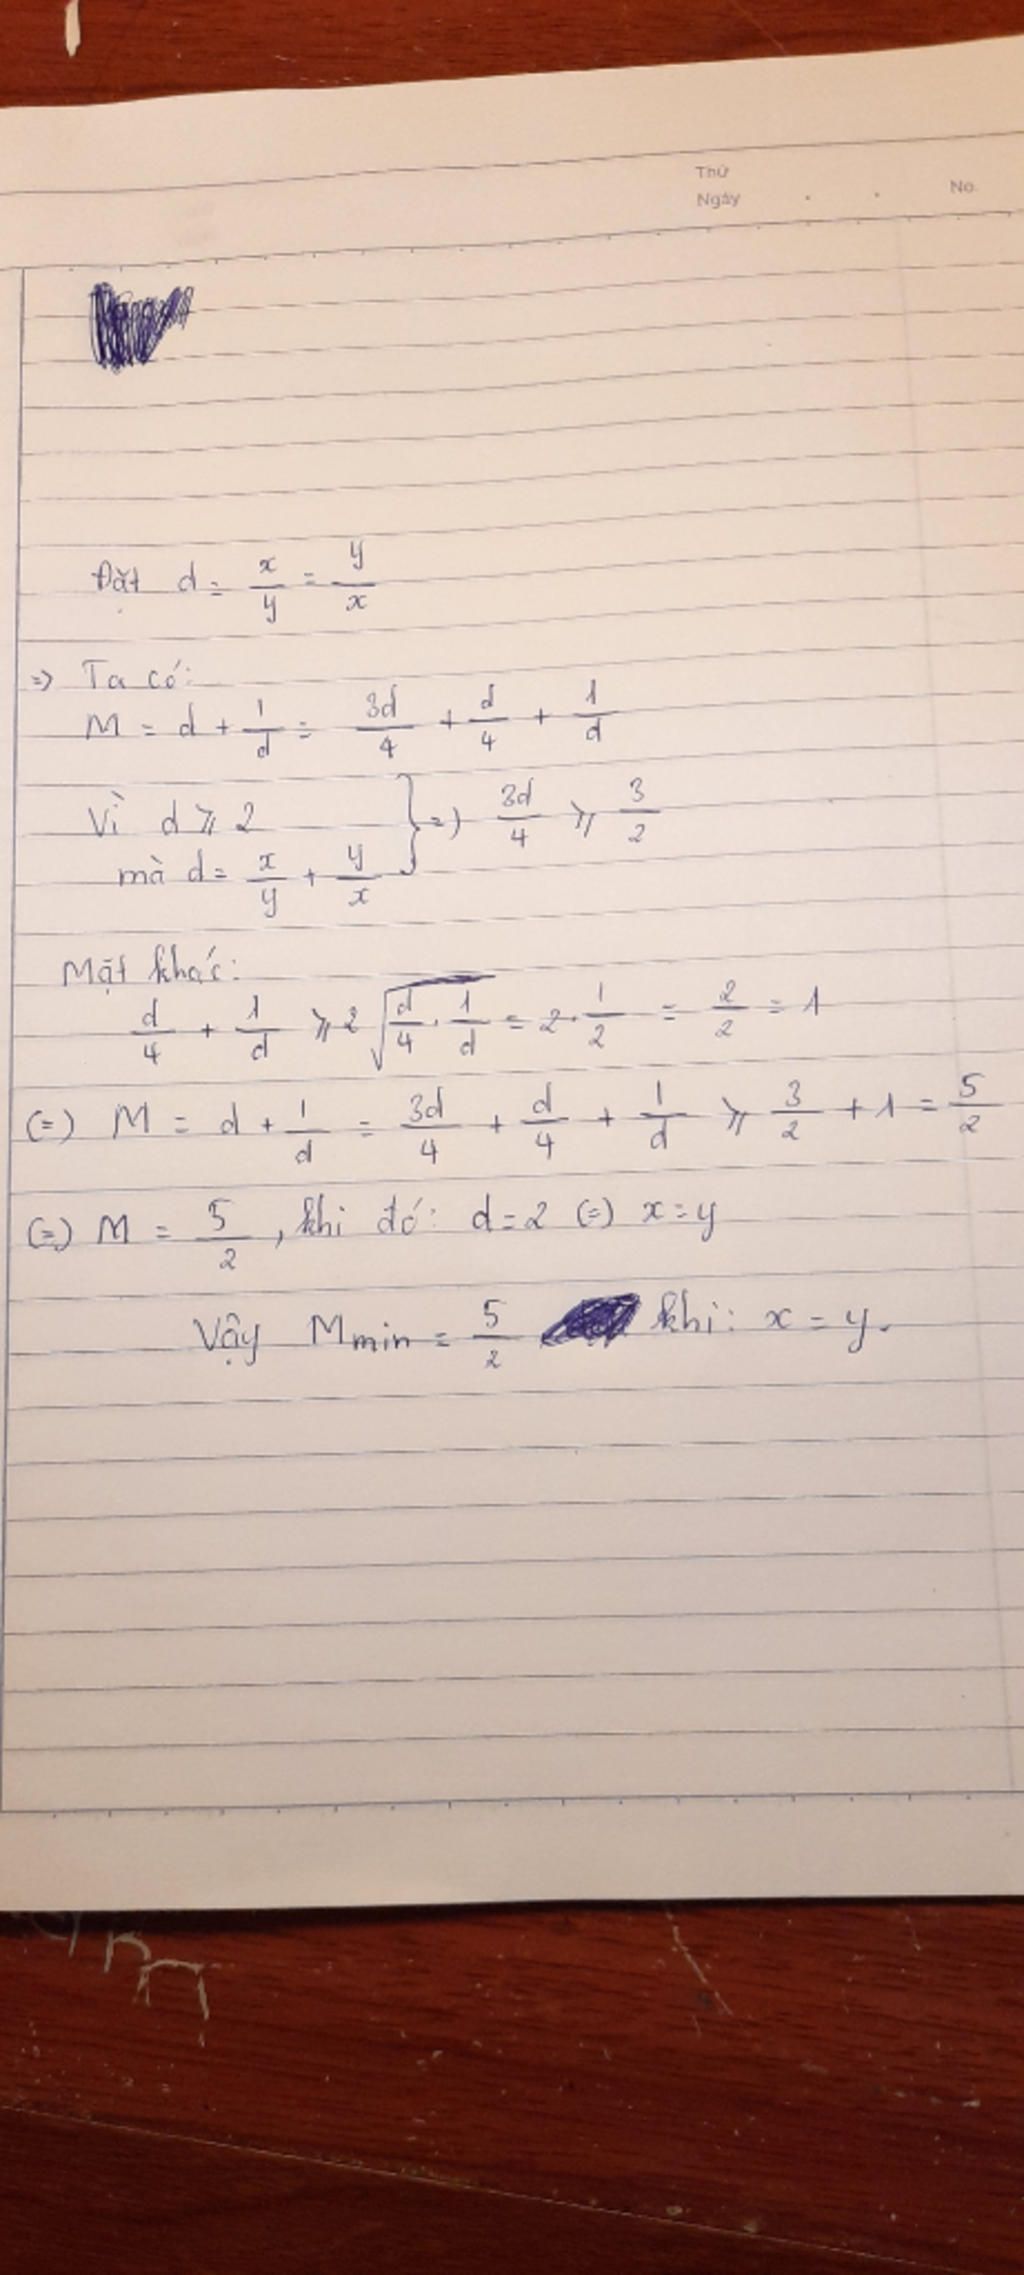 Thứ
Ngày . . No.
Đặt d = x/y = y/x
=> Ta có:
M = d + 1/d = 3d/4 + d/4 + 1/d
Vì d ⩾ 2
mà d = x/y + y/x } => 3d/4 ⩾ 3/2
Mặt khác:
d/4 + 1/d ⩾ 2√(d/4 . 1/d) = 2 . 1/2 = 2/2 = 1
(=) M = d + 1/d = 3d/4 + d/4 + 1/d ⩾ 3/2 + 1 = 5/2
(=) M = 5/2, khi đó: d = 2 (=) x = y
Vậy Mmin = 5/2 khi: x = y.